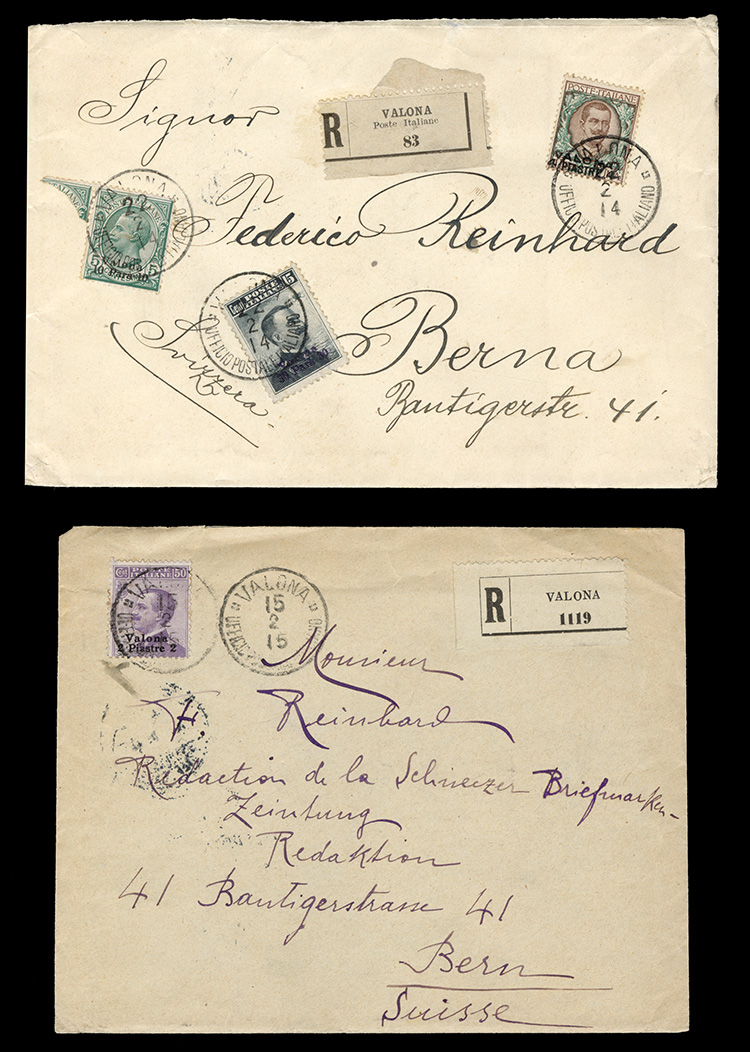 Signor
R
VALONA
Poste Italiane
83
POSTE ITALIANE
PIASTRE
VALONA
2
14
UFFICIO POSTALE ITALIANO
5 5
10 Para 10
VALONA
Federico Reinhard
POSTE
ITALIANE
15
22
2
14
UFFICIO POSTALE ITALIANO
Svizzera
Berna
Bantigerstr. 41.
50
Valona
2 Piastre 2
VALONA
15
2
15
VALONA
15
2
15
R
VALONA
1119
Monsieur
H Reinhard
Redaction de la Schweezer Briefmarken-
Zeintung
Redaktion
41 Bantigerstrasse 41
Bern
Suisse